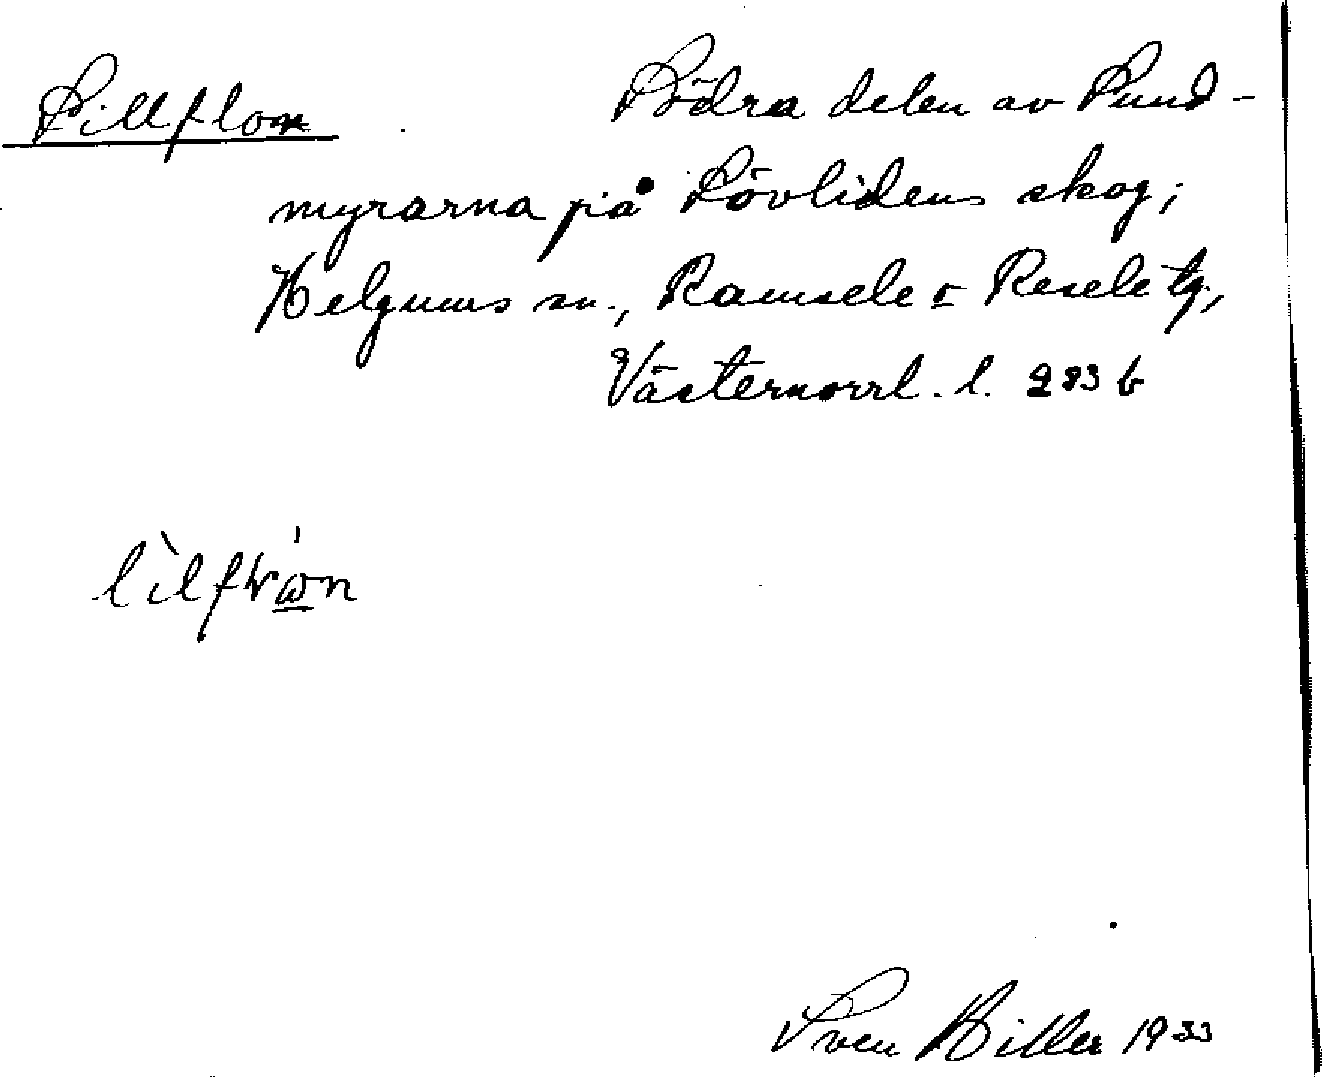 Lillflon
Södra delen av Sund-
myrarna på Lövlidens skog;
Helgums sn., Ramsele o Resele tg,
Västernorrl. l. 283 b
Sven Hiller 1933